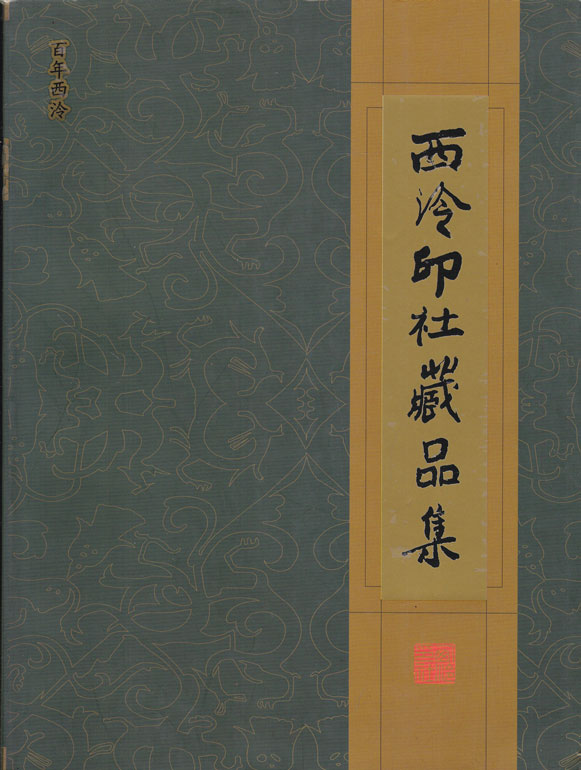 百年西泠
西泠印社藏品集